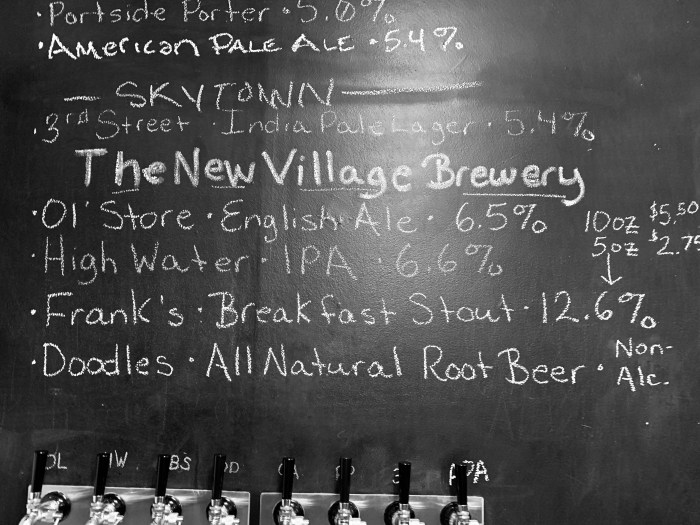 ·Portside Porter · 5.0%
·American Pale Ale · 5.4%
— SKYTOWN —
·3rd Street · India Pale Lager · 5.4%
The New Village Brewery
·Ol' Store · English Ale · 6.5%
10oz $5.50
5oz $2.75
·High Water · IPA · 6.6%
·Frank's · Breakfast Stout · 12.6%
·Doodles · All Natural Root Beer · Non-Alc.
OL HW BS DD APA